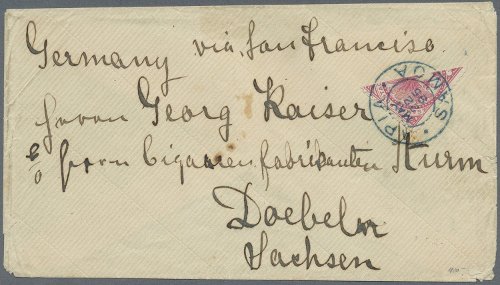 Germany via San Francisco.
Herrn Georg Kaiser
c/o Herrn Cigarrenfabrikanten Sturm
Doebeln
Sachsen
APIA
SAMOA